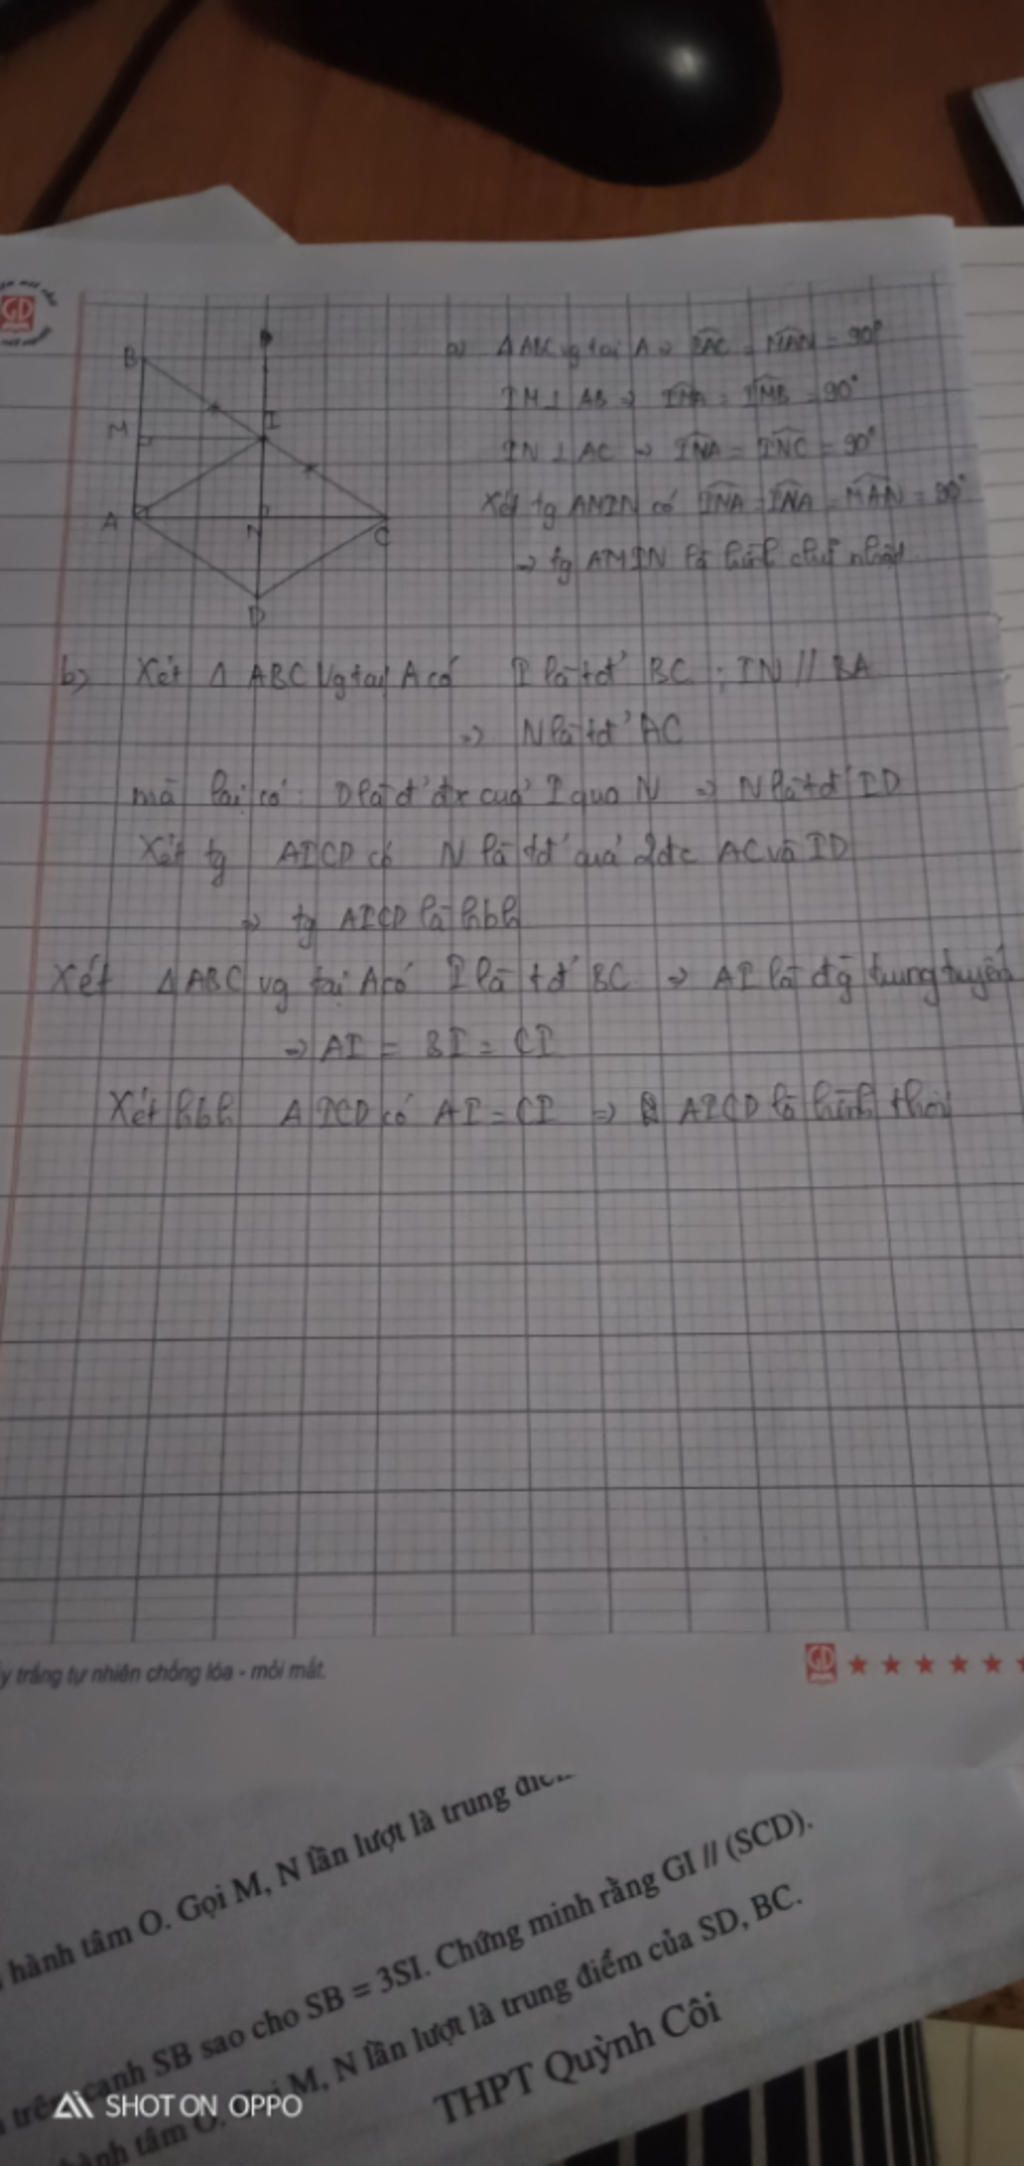 GD
B
I
M
A
N
C
D
a) Δ ABC vg tại A => BAC = MAN = 90°
IM ⊥ AB => IMA = IMB = 90°
IN ⊥ AC => INA = INC = 90°
Xét tg AMIN có IMA = INA = MAN = 90°
=> tg AMIN là hình chữ nhật
b) Xét Δ ABC vg tại A có I là tđ' BC ; IN // BA
=> N là tđ' AC
mà lại có: D là đ' đx của I qua N => N là tđ' ID
Xét tg AICD có N là tđ' của 2đc AC và ID
=> tg AICD là hbh
Xét Δ ABC vg tại A có I là tđ' BC => AI là đg trung tuyến
=> AI = BI = CI
Xét hbh AICD có AI = CI => AICD là hình thoi
y trắng tự nhiên chống lóa - mỏi mắt.
GD
hành tâm O. Gọi M, N lần lượt là trung điểm
trên cạnh SB sao cho SB = 3SI. Chứng minh rằng GI // (SCD).
hành tâm O. Gọi M, N lần lượt là trung điểm của SD, BC.
THPT Quỳnh Côi
SHOT ON OPPO